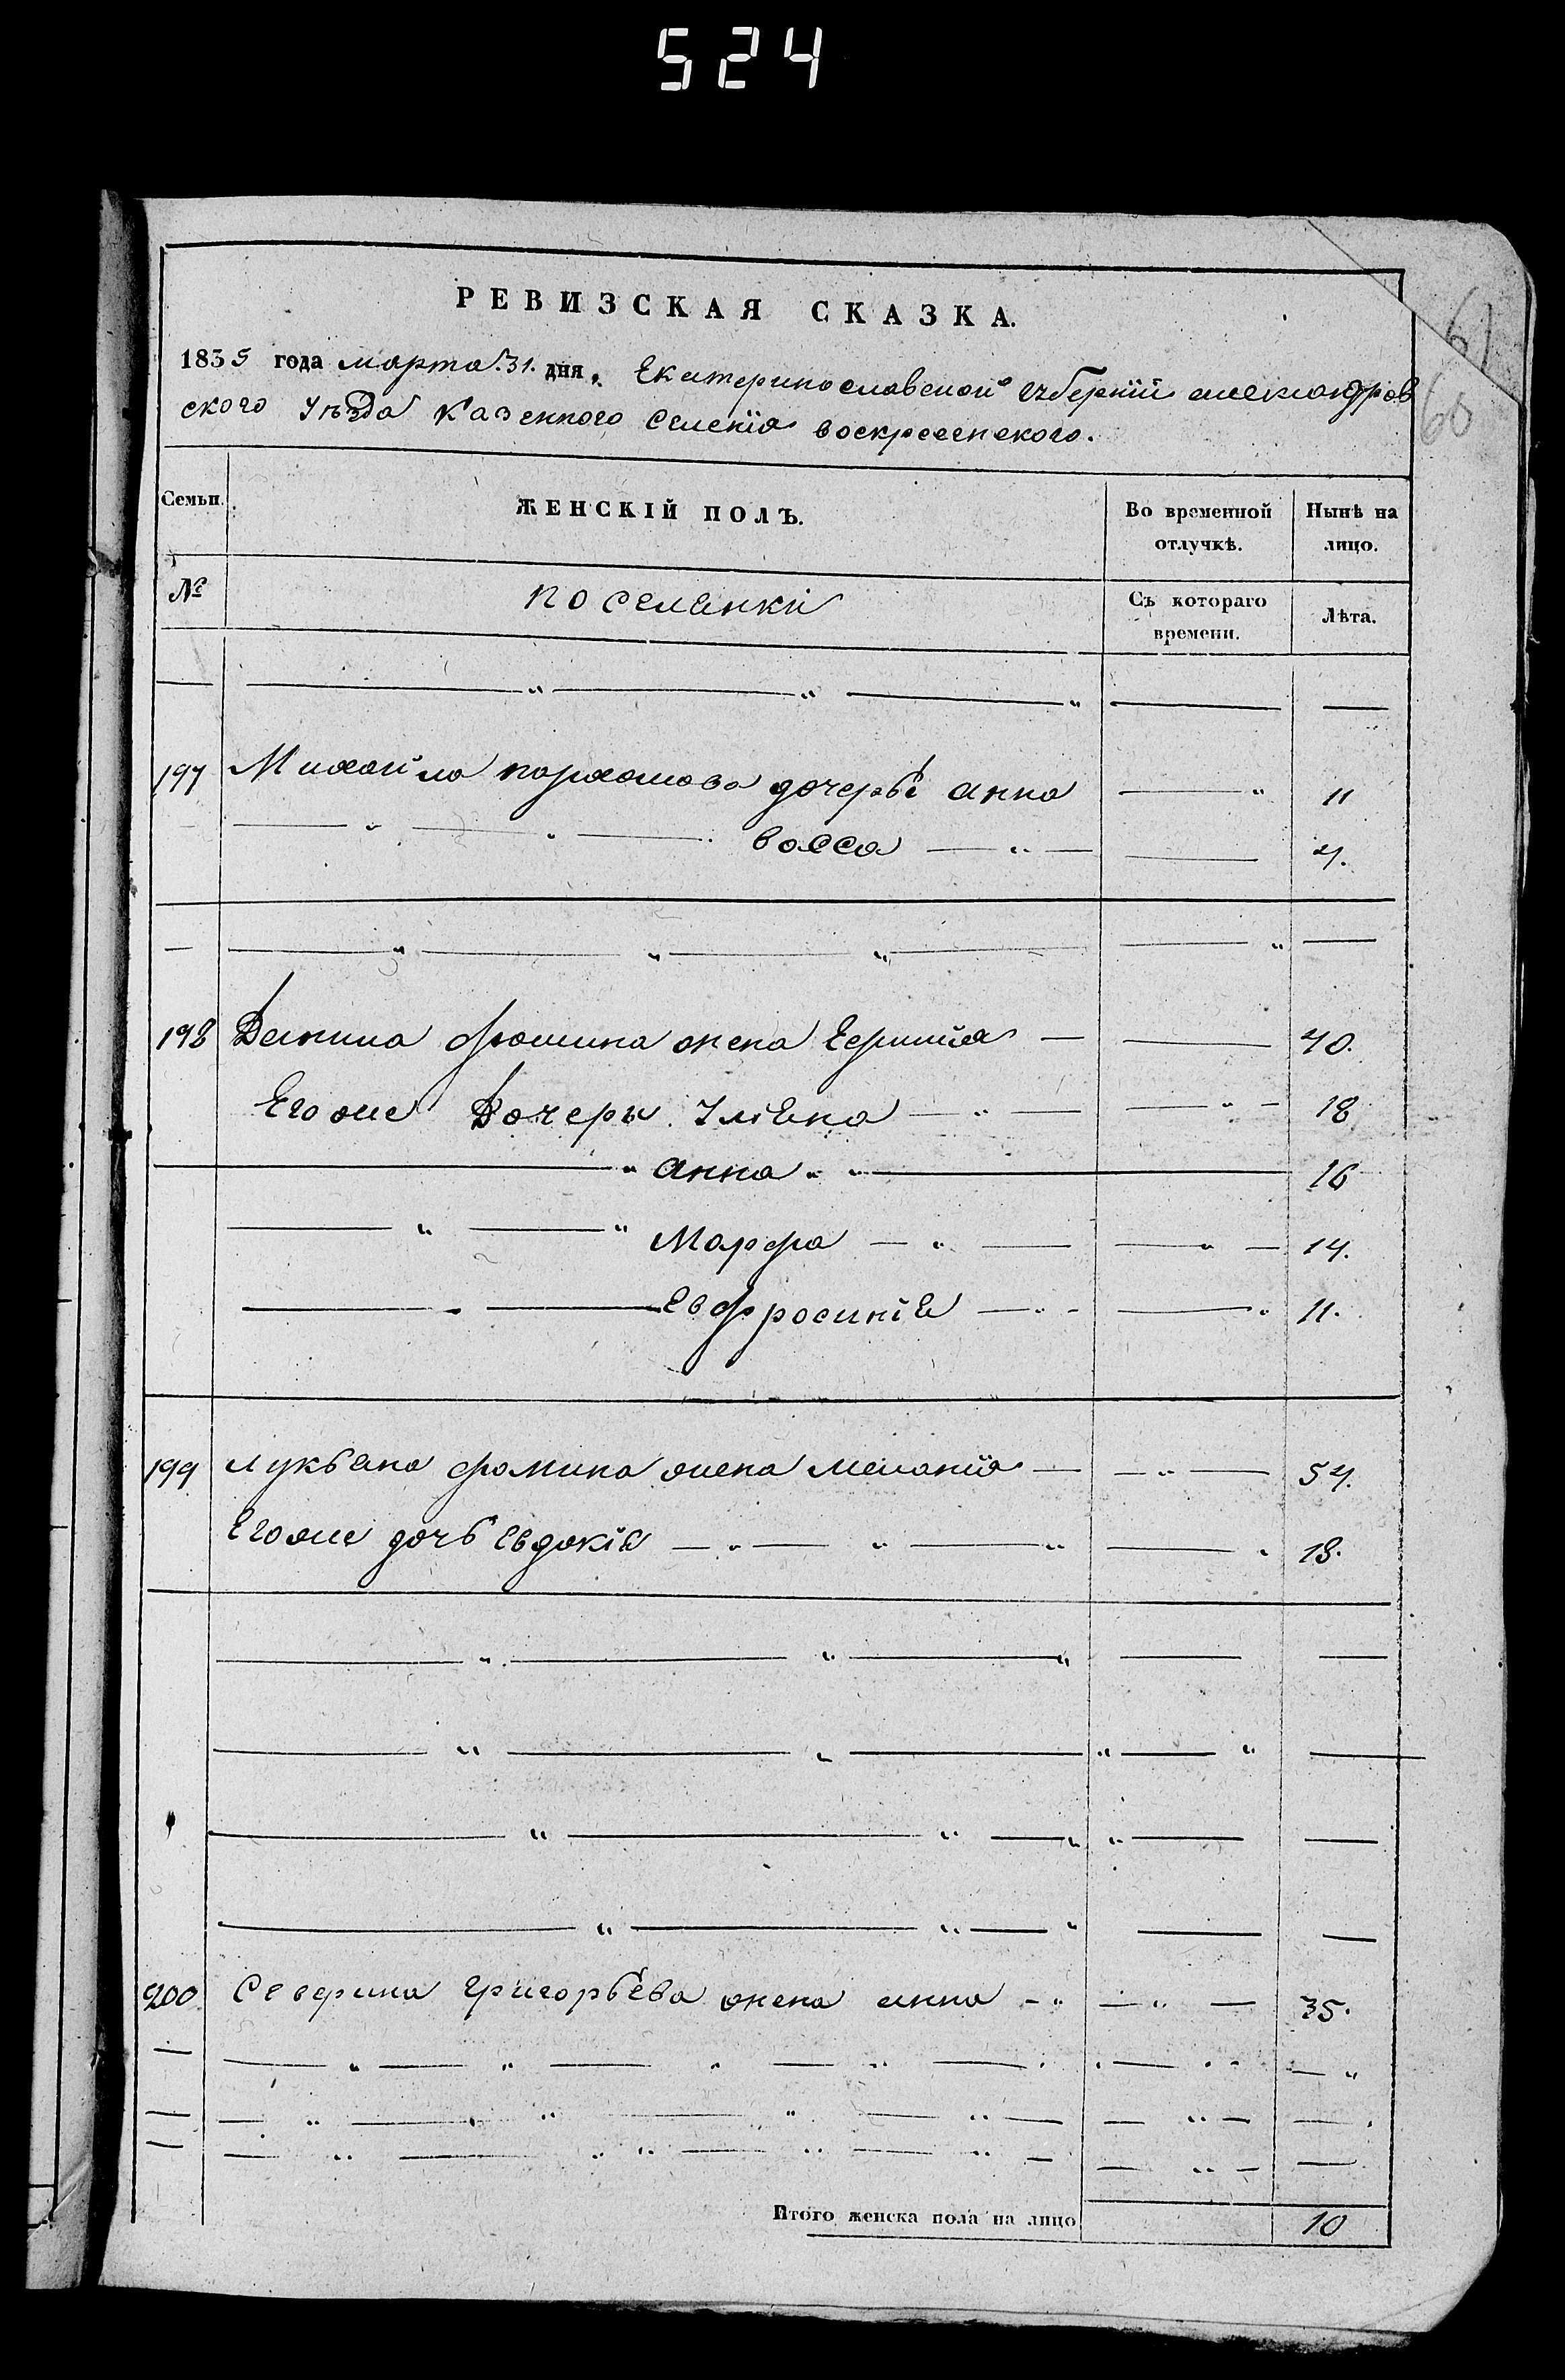 524
61
60
РЕВИЗСКАЯ СКАЗКА.
1835 года марта 31. дня. Екатеринославской губернїи александров
ского уѣзда казенного Селенїя воскресенского.
Семьи. ЖЕНСКІЙ ПОЛЪ. Во временной отлучкѣ. Нынѣ на лицо.
№ поселенки Съ котораго времени. Лѣта.
197 Михайла пархомова дочерьи анна 11
васса 4.
198 Данила фомина жена 40.
Его же Дочери Ульена 18
анна 16
Марфа 14.
Евфросинїе 11.
199 лукьена фомина жена меланїя 54.
Его же дочь евдокїе 18.
200 Северина григорьева жена анна 35.
Итого женска пола на лицо 10